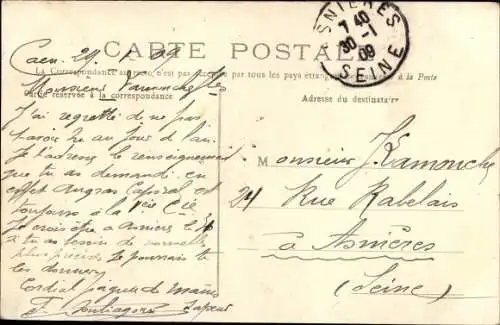 CARTE POSTALE
La Correspondance au recto, n'est pas acceptée par tous les pays étrangers à la Poste
Partie réservée à la correspondance
Adresse du destinataire
ASNIÈRES
7 40
30 -1
09
SEINE
Caen. 29. 1. 09
Monsieur
J'ai regretté de ne pas
t'avoir vu au jour de l'an.
Je t'adresse le renseignement
que tu as demandé en
effet Caporal est
toujours à la 1ère Cie
Je crois être à Asnières le
si tu as besoin de nouvelles
plus précises Je pourrais te
les donner
Cordial poignée de mains
Sapeur
Monsieur J. Lamouche
24 Rue Rabelais
à Asnières
(Seine)